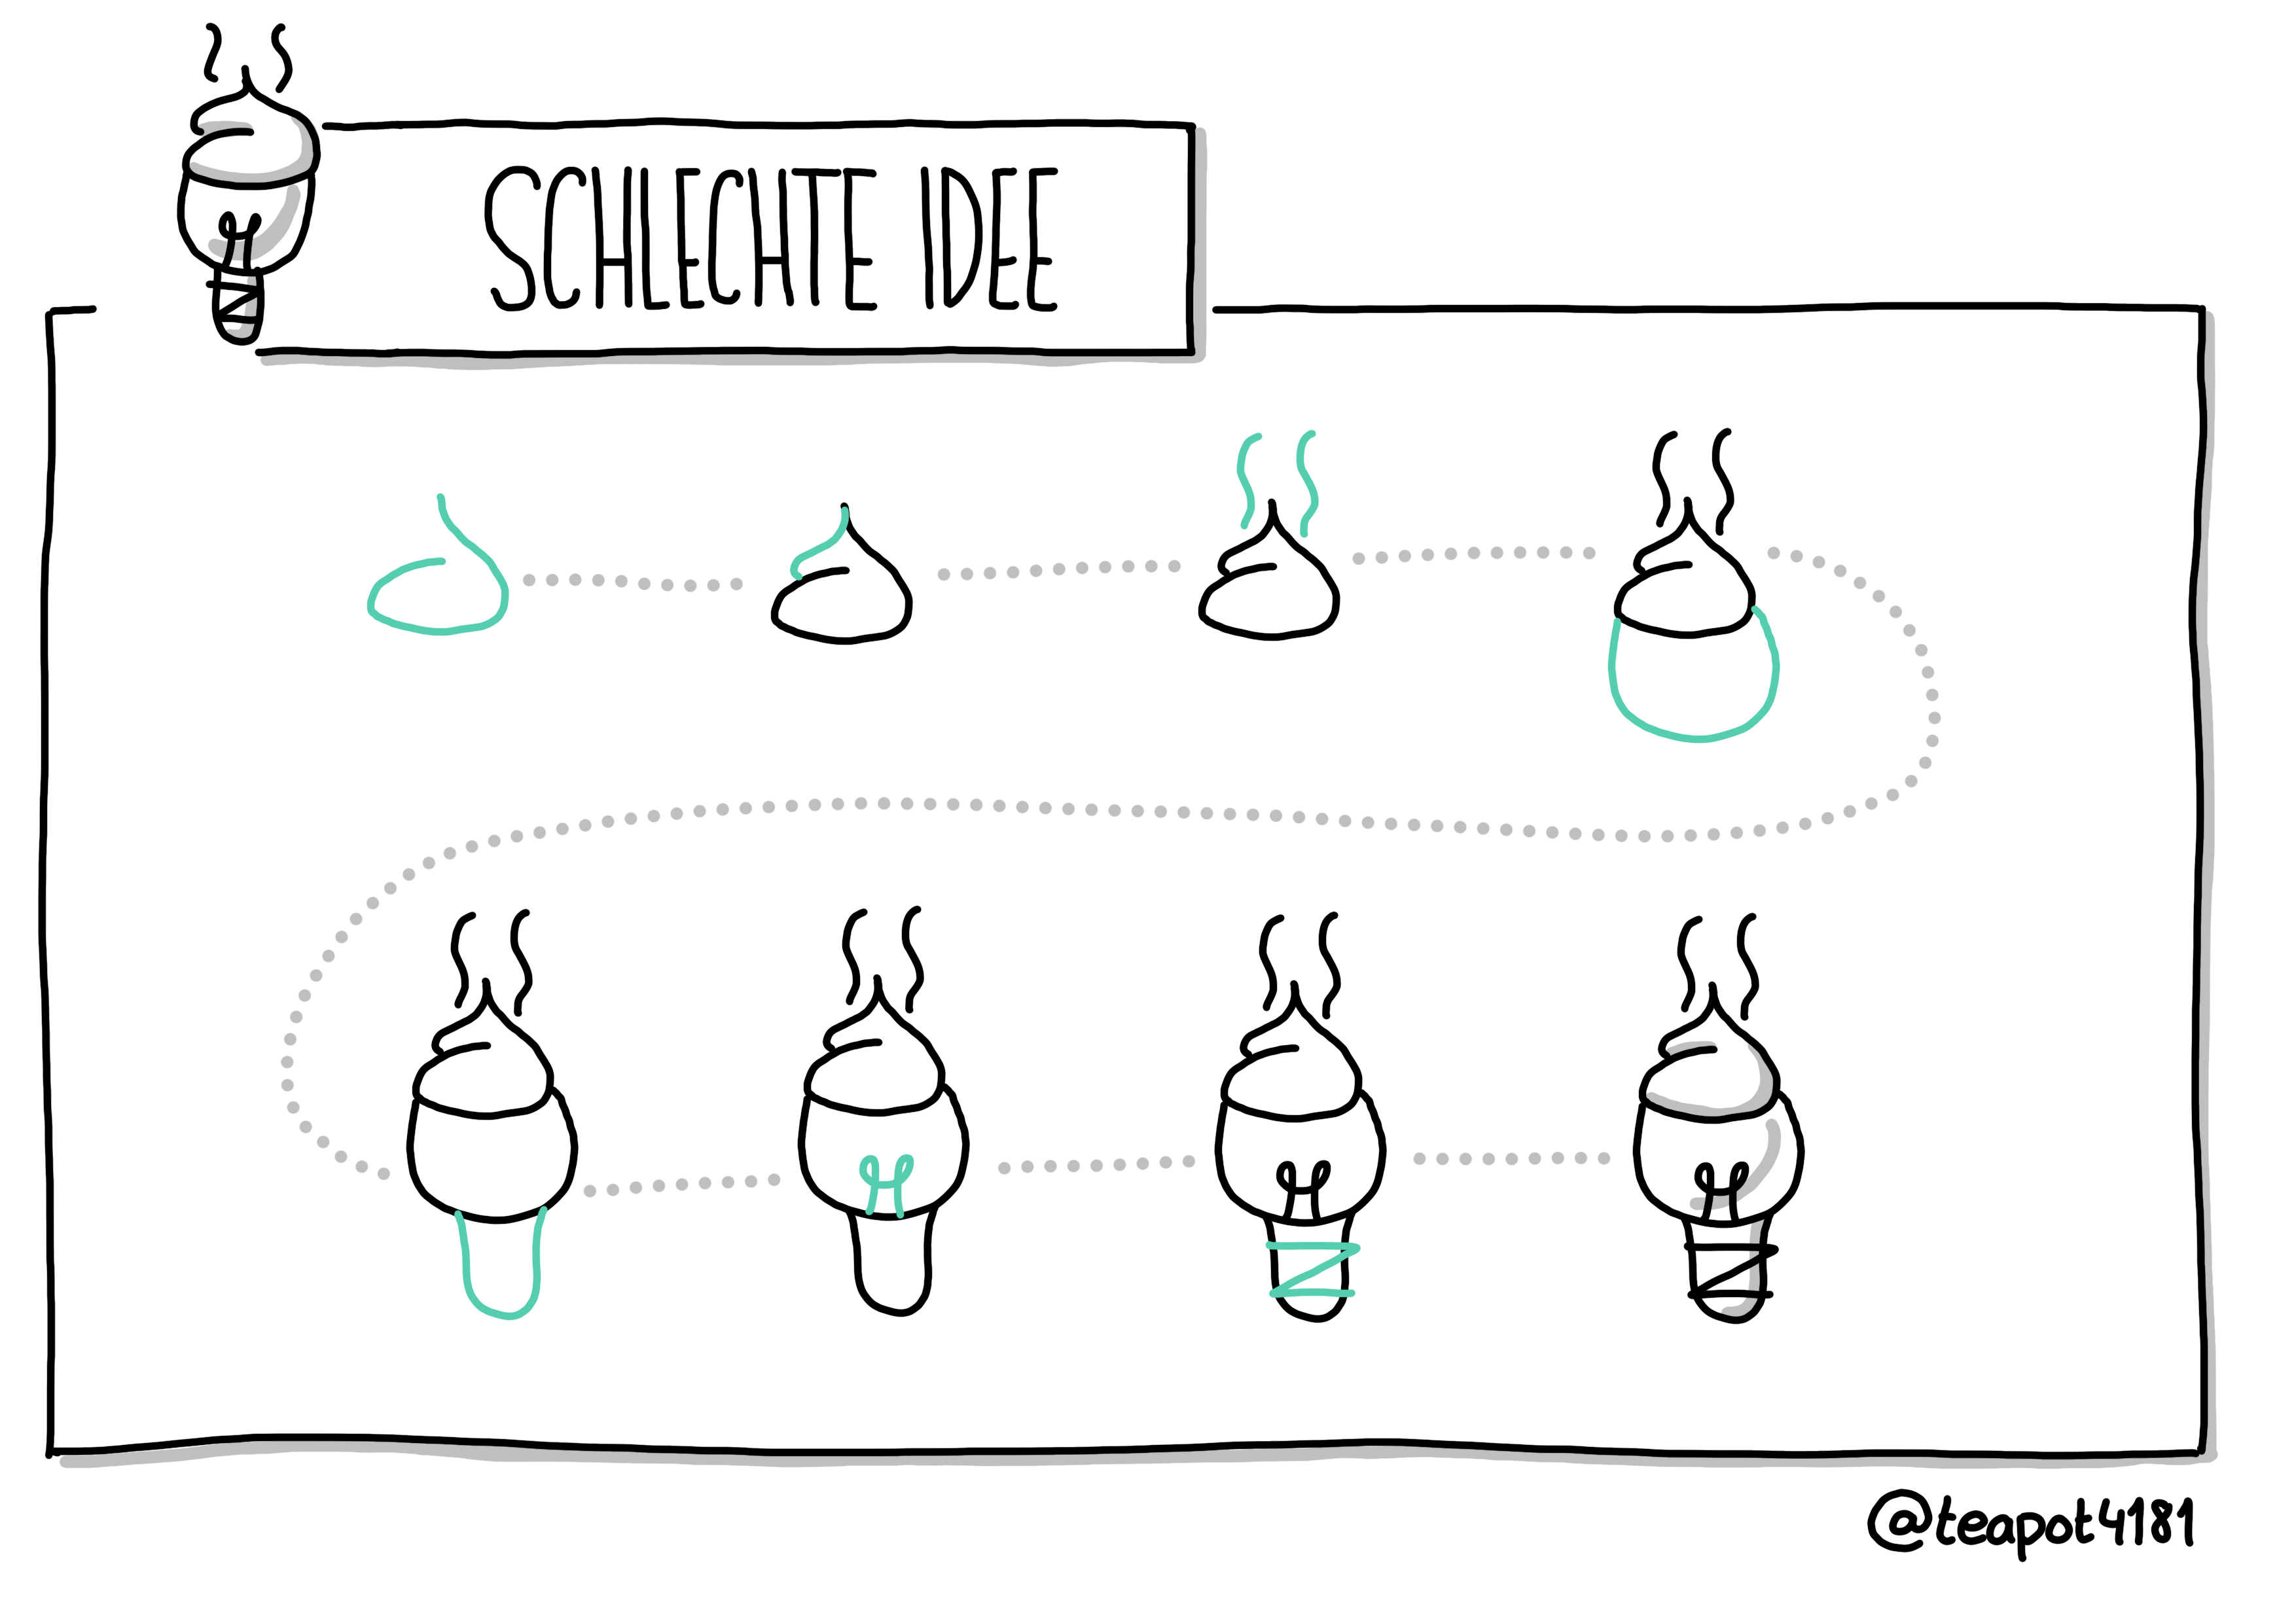 SCHLECHTE IDEE
@teapot4181